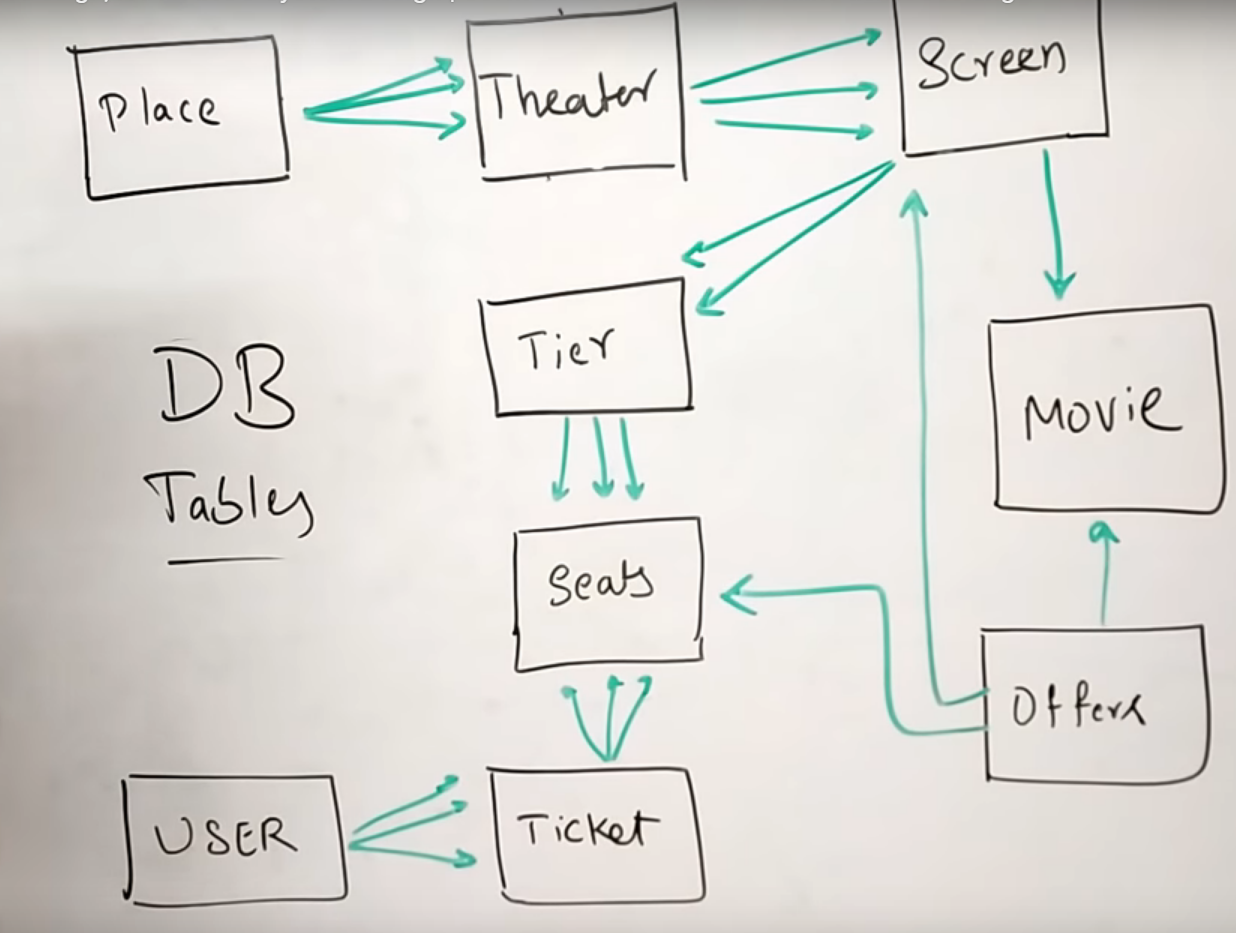 Place
Theater
Screen
Tier
Movie
DB
Tables
Seats
Offers
USER
Ticket